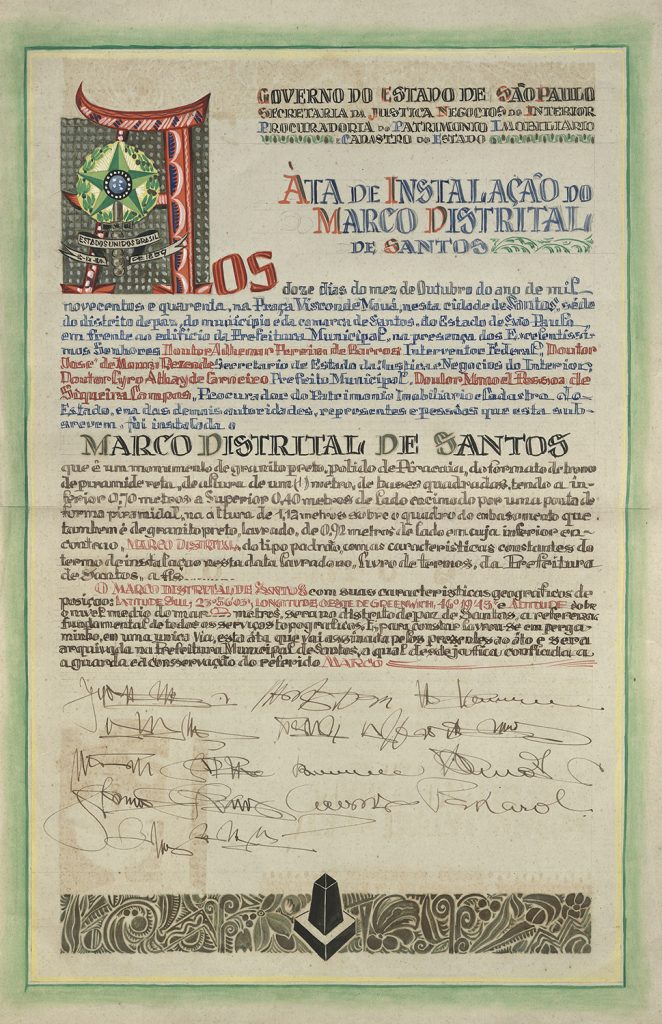 GOVERNO DO ESTADO DE SÃO PAULO
SECRETARIA DA JUSTIÇA NEGOCIOS DO INTERIOR
PROCURADORIA DO PATRIMONIO IMOBILIARIO
E CADASTRO DO ESTADO
ÀTA DE INSTALAÇÃO DO
MARCO DISTRITAL
DE SANTOS
ESTADOS UNIDOS BRASIL
DE 1889
AOS
doze dias do mez de Outubro do ano de mil
novecentos e quarenta, na Praça Visconde Mauá, nesta cidade de Santos, séde
do distrito de paz, do município e da comarca de Santos, do Estado de São Paulo,
em frente ao edifício da Prefeitura Municipal, na presença dos Excelentissi-
mos Senhores Doutor Adhemar Pereira de Barros Interventor Federal, Doutor
José de Moura Rezende Secretario de Estado da Justiça e Negocios do Interior,
Doutor Cyro Athayde Carneiro Prefeito Municipal, Doutor Manoel Pessoa de
Siqueira Campos, Procurador do Patrimonio Imobiliario e Cadastro do
Estado, e na das demais autoridades, representes e pessôas que esta sub-
screvem, foi instalado o
MARCO DISTRITAL DE SANTOS
que é um monumento de granito preto, polido de Piracaia, do formato de tronco
de piramide reta, de altura de um (1) metro, de bases quadradas, tendo a in-
ferior 0,70 metros a Superior 0,40 metros de lado encimado por uma ponta de
forma piramidal, na altura de 1,13 metros sobre o quadro do embasamento que
tambem é de granito preto, lavrado, de 0,92 metros de lado em cuja inferior en-
MARCO DISTRITAL, do tipo padrão, com as caracteristicas constantes do
termo de instalação nesta data lavrado no livro de termos, da Prefeitura
de Santos, a fls
O MARCO DISTRITAL DE SANTOS com suas caracteristicas geográficas de
posição: LATITUDE SUL, 23º56'03", LONGITUDE OESTE DE GREENWICH, 46º19'43" e ALTITUDE sobre
o nivel medio do mar metros, será no distrito de paz de Santos, a referencia
fundamental de todos os serviços topográficos. E, para constar lavrou-se em perga-
minho, em uma unica via, esta áta, que vai assinada pelos presentes ao áto e será
arquivada na Prefeitura Municipal de Santos, a qual desde já fica confiada a
a guarda e a conservação do referido MARCO